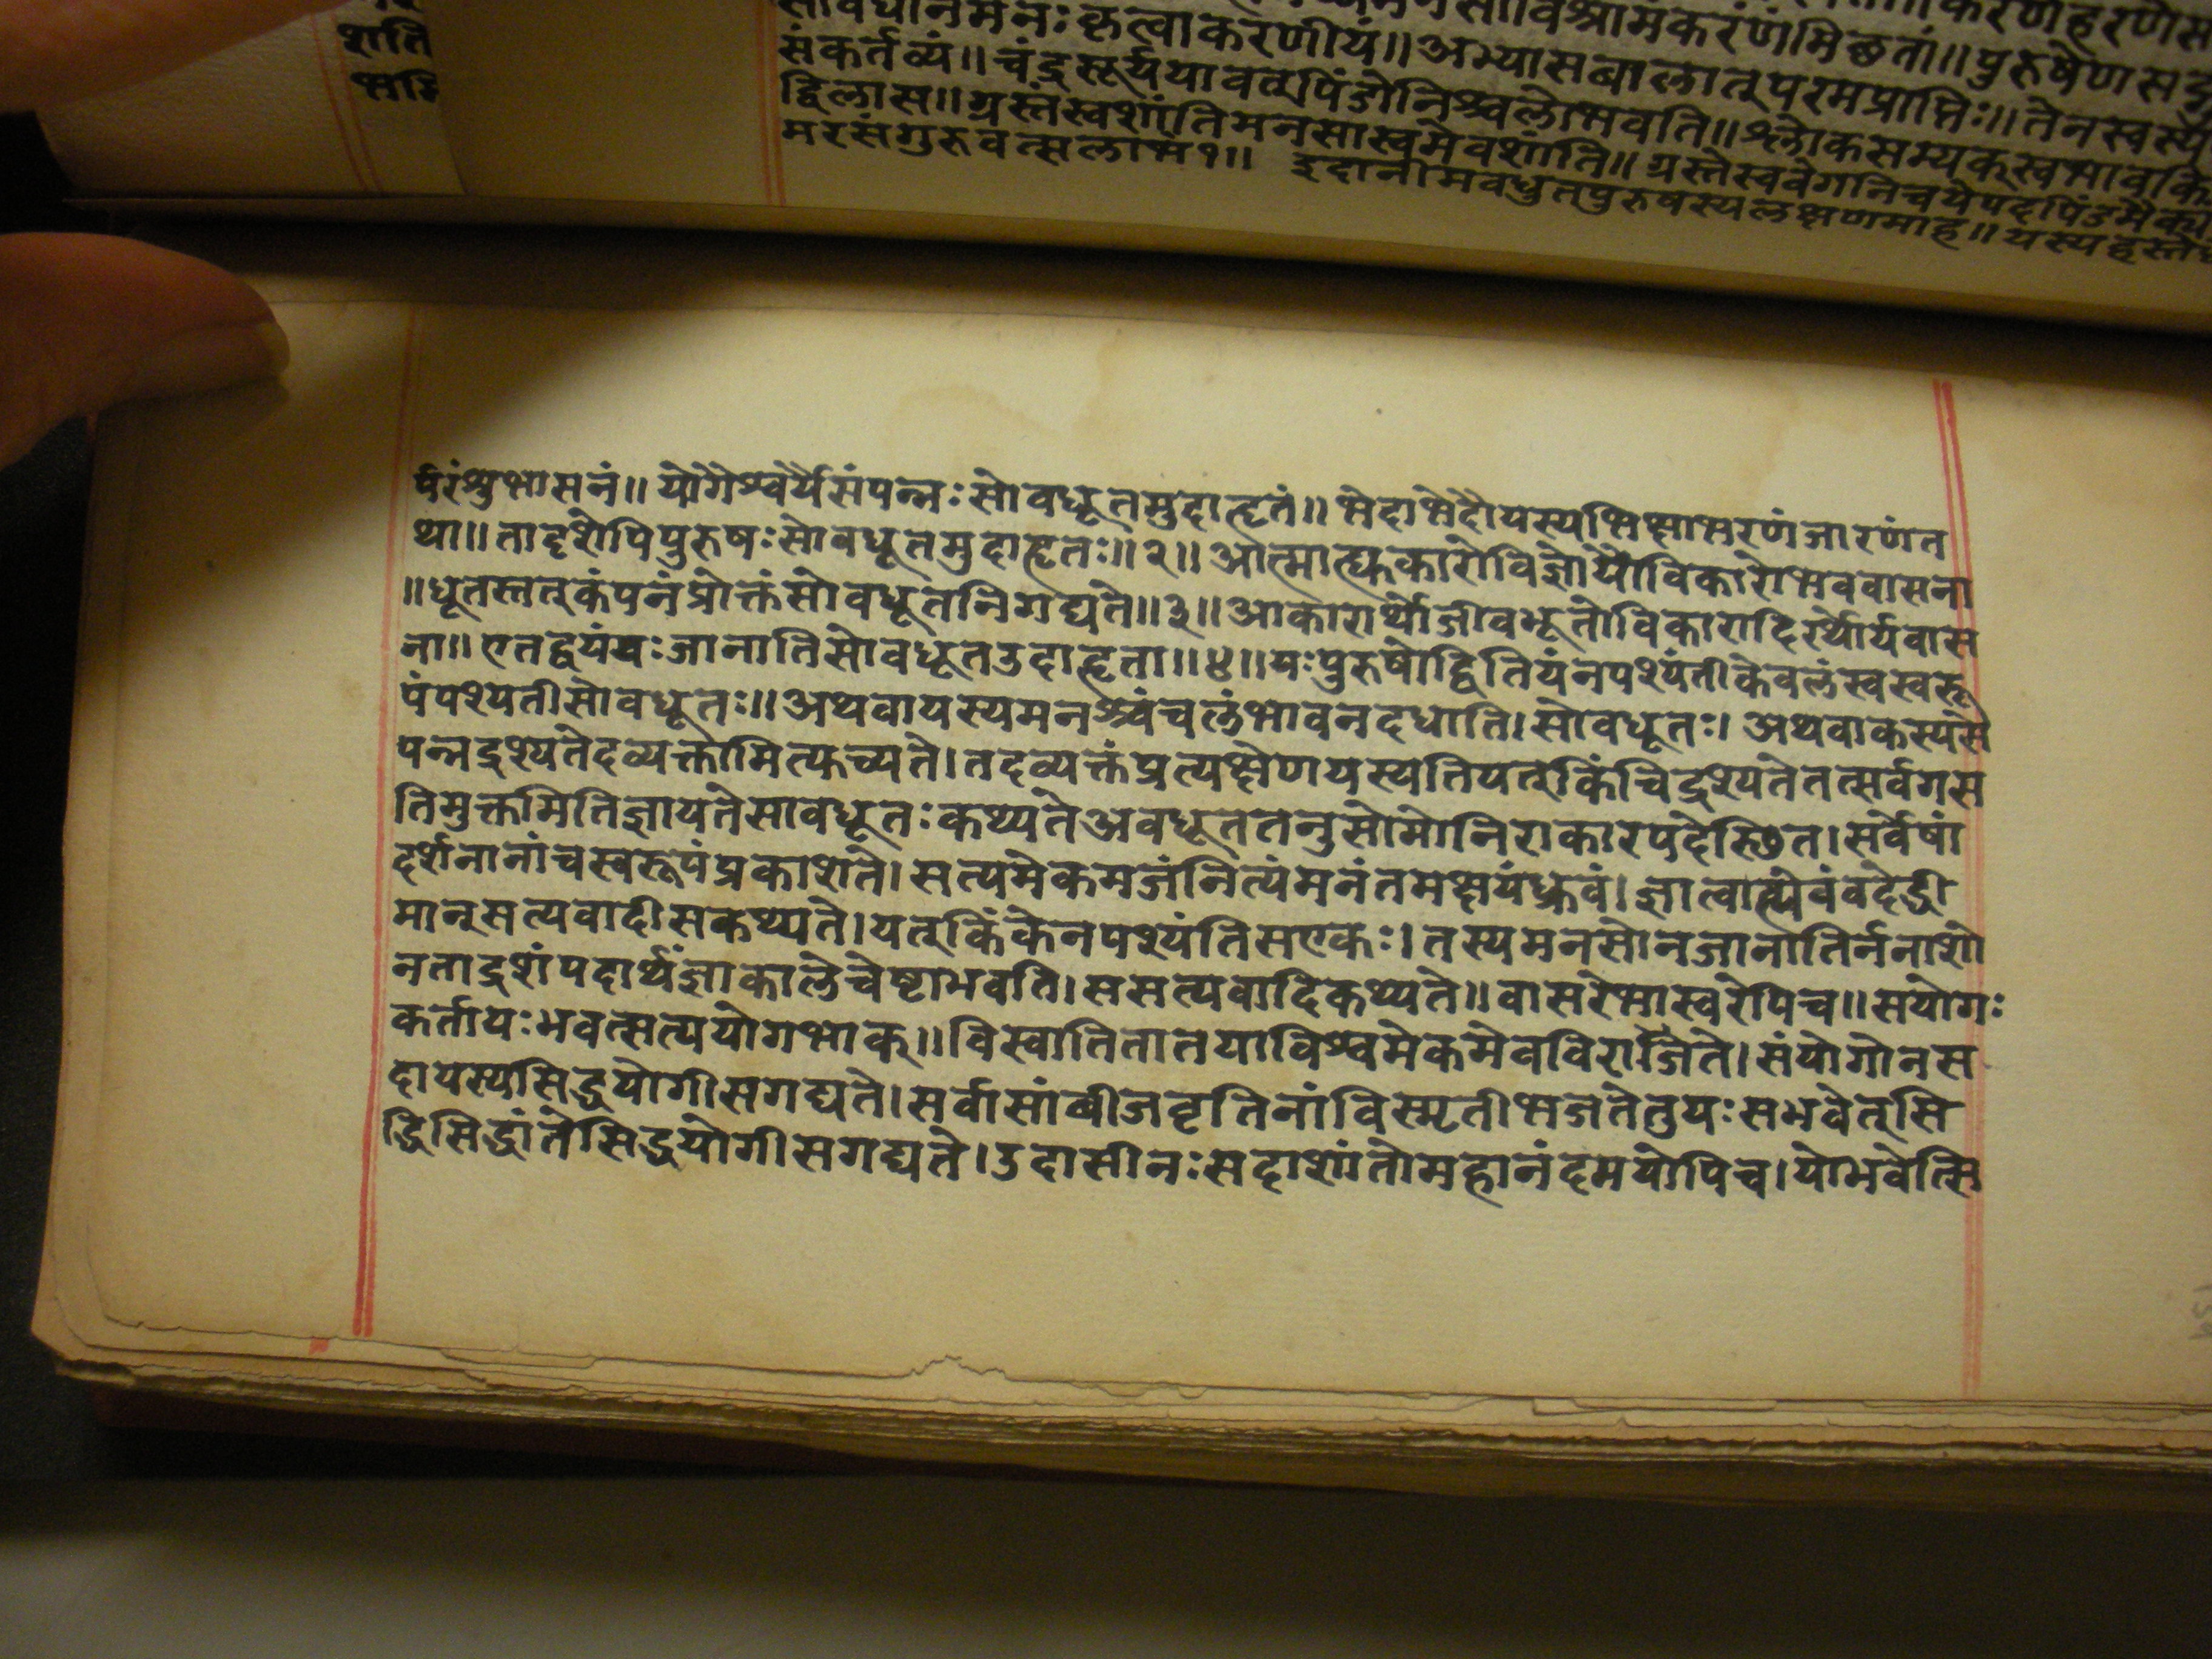 शति
सावधानमनः कृत्वाकरणीयं॥ अभ्यासबालातूपरमप्राप्तिः॥ तेनस्वस्ये
संकर्तव्यं॥ चंद्रसूर्ययावत्पपिंडोनिश्चलोभवति॥ श्लोकसम्यक्स्वभावकि
द्विलास॥ ग्रस्तंस्वशांतिमनसास्वमेवशांति॥ ग्रस्तेस्ववेगनिचयेपदपिंडमैक्य
मरसंगुरुवत्सलाभं१॥ इदानीमवधुतपुरुषस्यलक्षणमाह॥ यस्यहस्ते
र्परंश्रुभासनं॥ योगैश्वर्यैसंपन्नः सोवधूतमुदाहृतं॥ भेदाभेदौयस्यभिक्षाभरणंजारणंत
था॥ तादृशेपिपुरुषः सोवधूतमुदाहृतः॥२॥ आत्मात्ह्यकारोविज्ञेयोविकारोभववासना
॥धूतस्ततुकंपनंप्रोक्तंसोवधूतनिगद्यते॥३॥ आकारार्थोजीवभूतोविकारादिरर्थोर्यवास
ना॥ एतद्वयंयः जानातिसोवधूतउदाहृता॥४॥ यः पुरुषोद्वितियंनपश्यंतीकेवलंस्वस्वरू
पंपश्यतीसोवधूतः॥ अथवायस्यमनश्चंचलंभावनदधाति। सोवधूतः। अथवाकस्यसे
पन्नदृश्यतेदव्यक्तामित्यच्यते। तदव्यक्तंप्रत्यक्षेणयस्यतियत्किंचिदृश्यतेतत्सर्वगस
तिमुक्तमितिज्ञायतेसावधूतः कथ्यतेअवधूततनुसोमोनिराकारपदेस्छित। सर्वेषां
दर्शनानांचस्वरूपंप्रकाशते। सत्यमेकमजंनित्यंमनंतमक्षयंध्रुवं। ज्ञात्वात्येवंवदेद्धी
मानुसत्यवादीसकथ्यते। यत्किंकेनपश्यंतिसएकः। तस्यमनसोनजानातिर्ननाशो
नतादृशंपदार्थंज्ञाकालेचेष्टाभवति। ससत्यवादिकथ्यते॥ वासरेभास्वरेपिच॥ सयोगः
कर्तायः भवत्सत्ययोगभाक्॥ विस्वातितातयाविश्वमेकमेवविराजिते। संयोगोनस
दायस्यसिद्धयोगीसगद्यते। सर्वासांबीजवृतिनांविस्मृतीभजतेतुयः सभवेत्सि
द्धिसिद्धांतेसिद्धयोगीसगद्यते। उदासीनः सदाशांतोमहानंदमयोपिच। योभवेत्सि